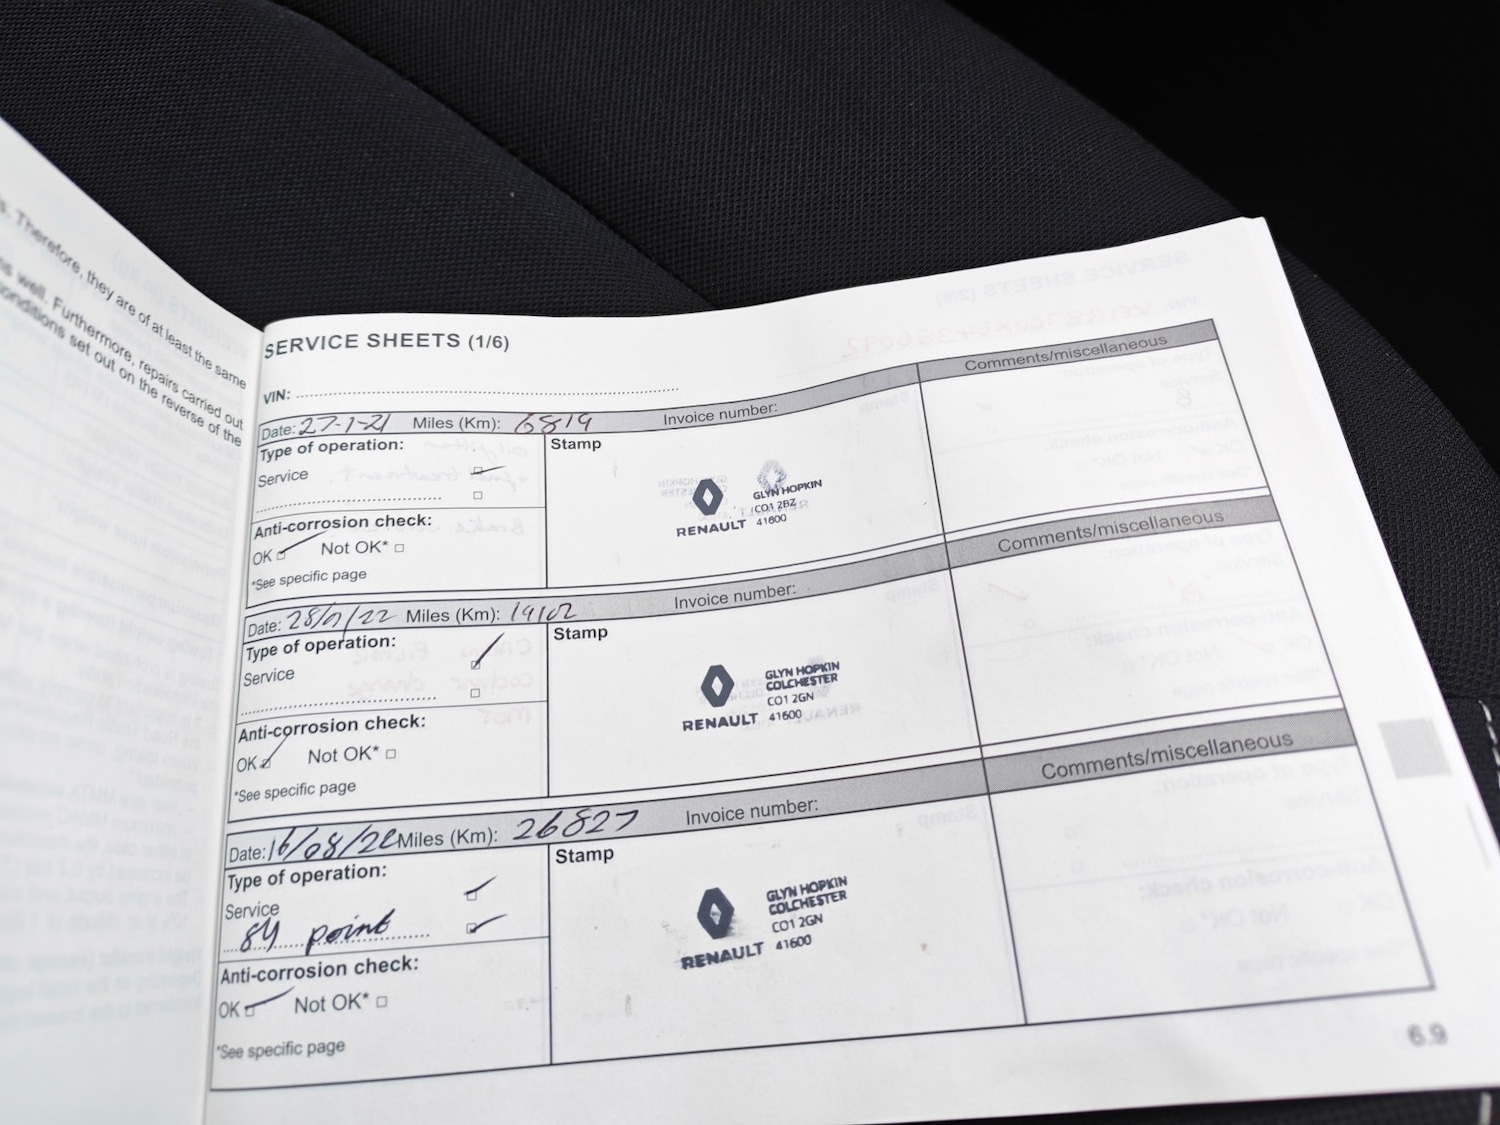 s. Therefore, they are of at least the same
ns well. Furthermore, repairs carried out
onditions set out on the reverse of the
SERVICE SHEETS (1/6)
VIN:
Date: 27-1-21 Miles (Km): 6819 Invoice number: Comments/miscellaneous
Type of operation: Stamp
Service
Anti-corrosion check:
OK Not OK*
*See specific page
RENAULT
GLYN HOPKIN
CO1 2BZ
41600
Date: 28/1/22 Miles (Km): 19102 Invoice number: Comments/miscellaneous
Type of operation: Stamp
Service
Anti-corrosion check:
OK Not OK*
*See specific page
RENAULT
GLYN HOPKIN
COLCHESTER
CO1 2GN
41600
Date: 16/08/22 Miles (Km): 26827 Invoice number: Comments/miscellaneous
Type of operation: Stamp
Service
84 point
Anti-corrosion check:
OK Not OK*
*See specific page
RENAULT
GLYN HOPKIN
COLCHESTER
CO1 2GN
41600
6.9